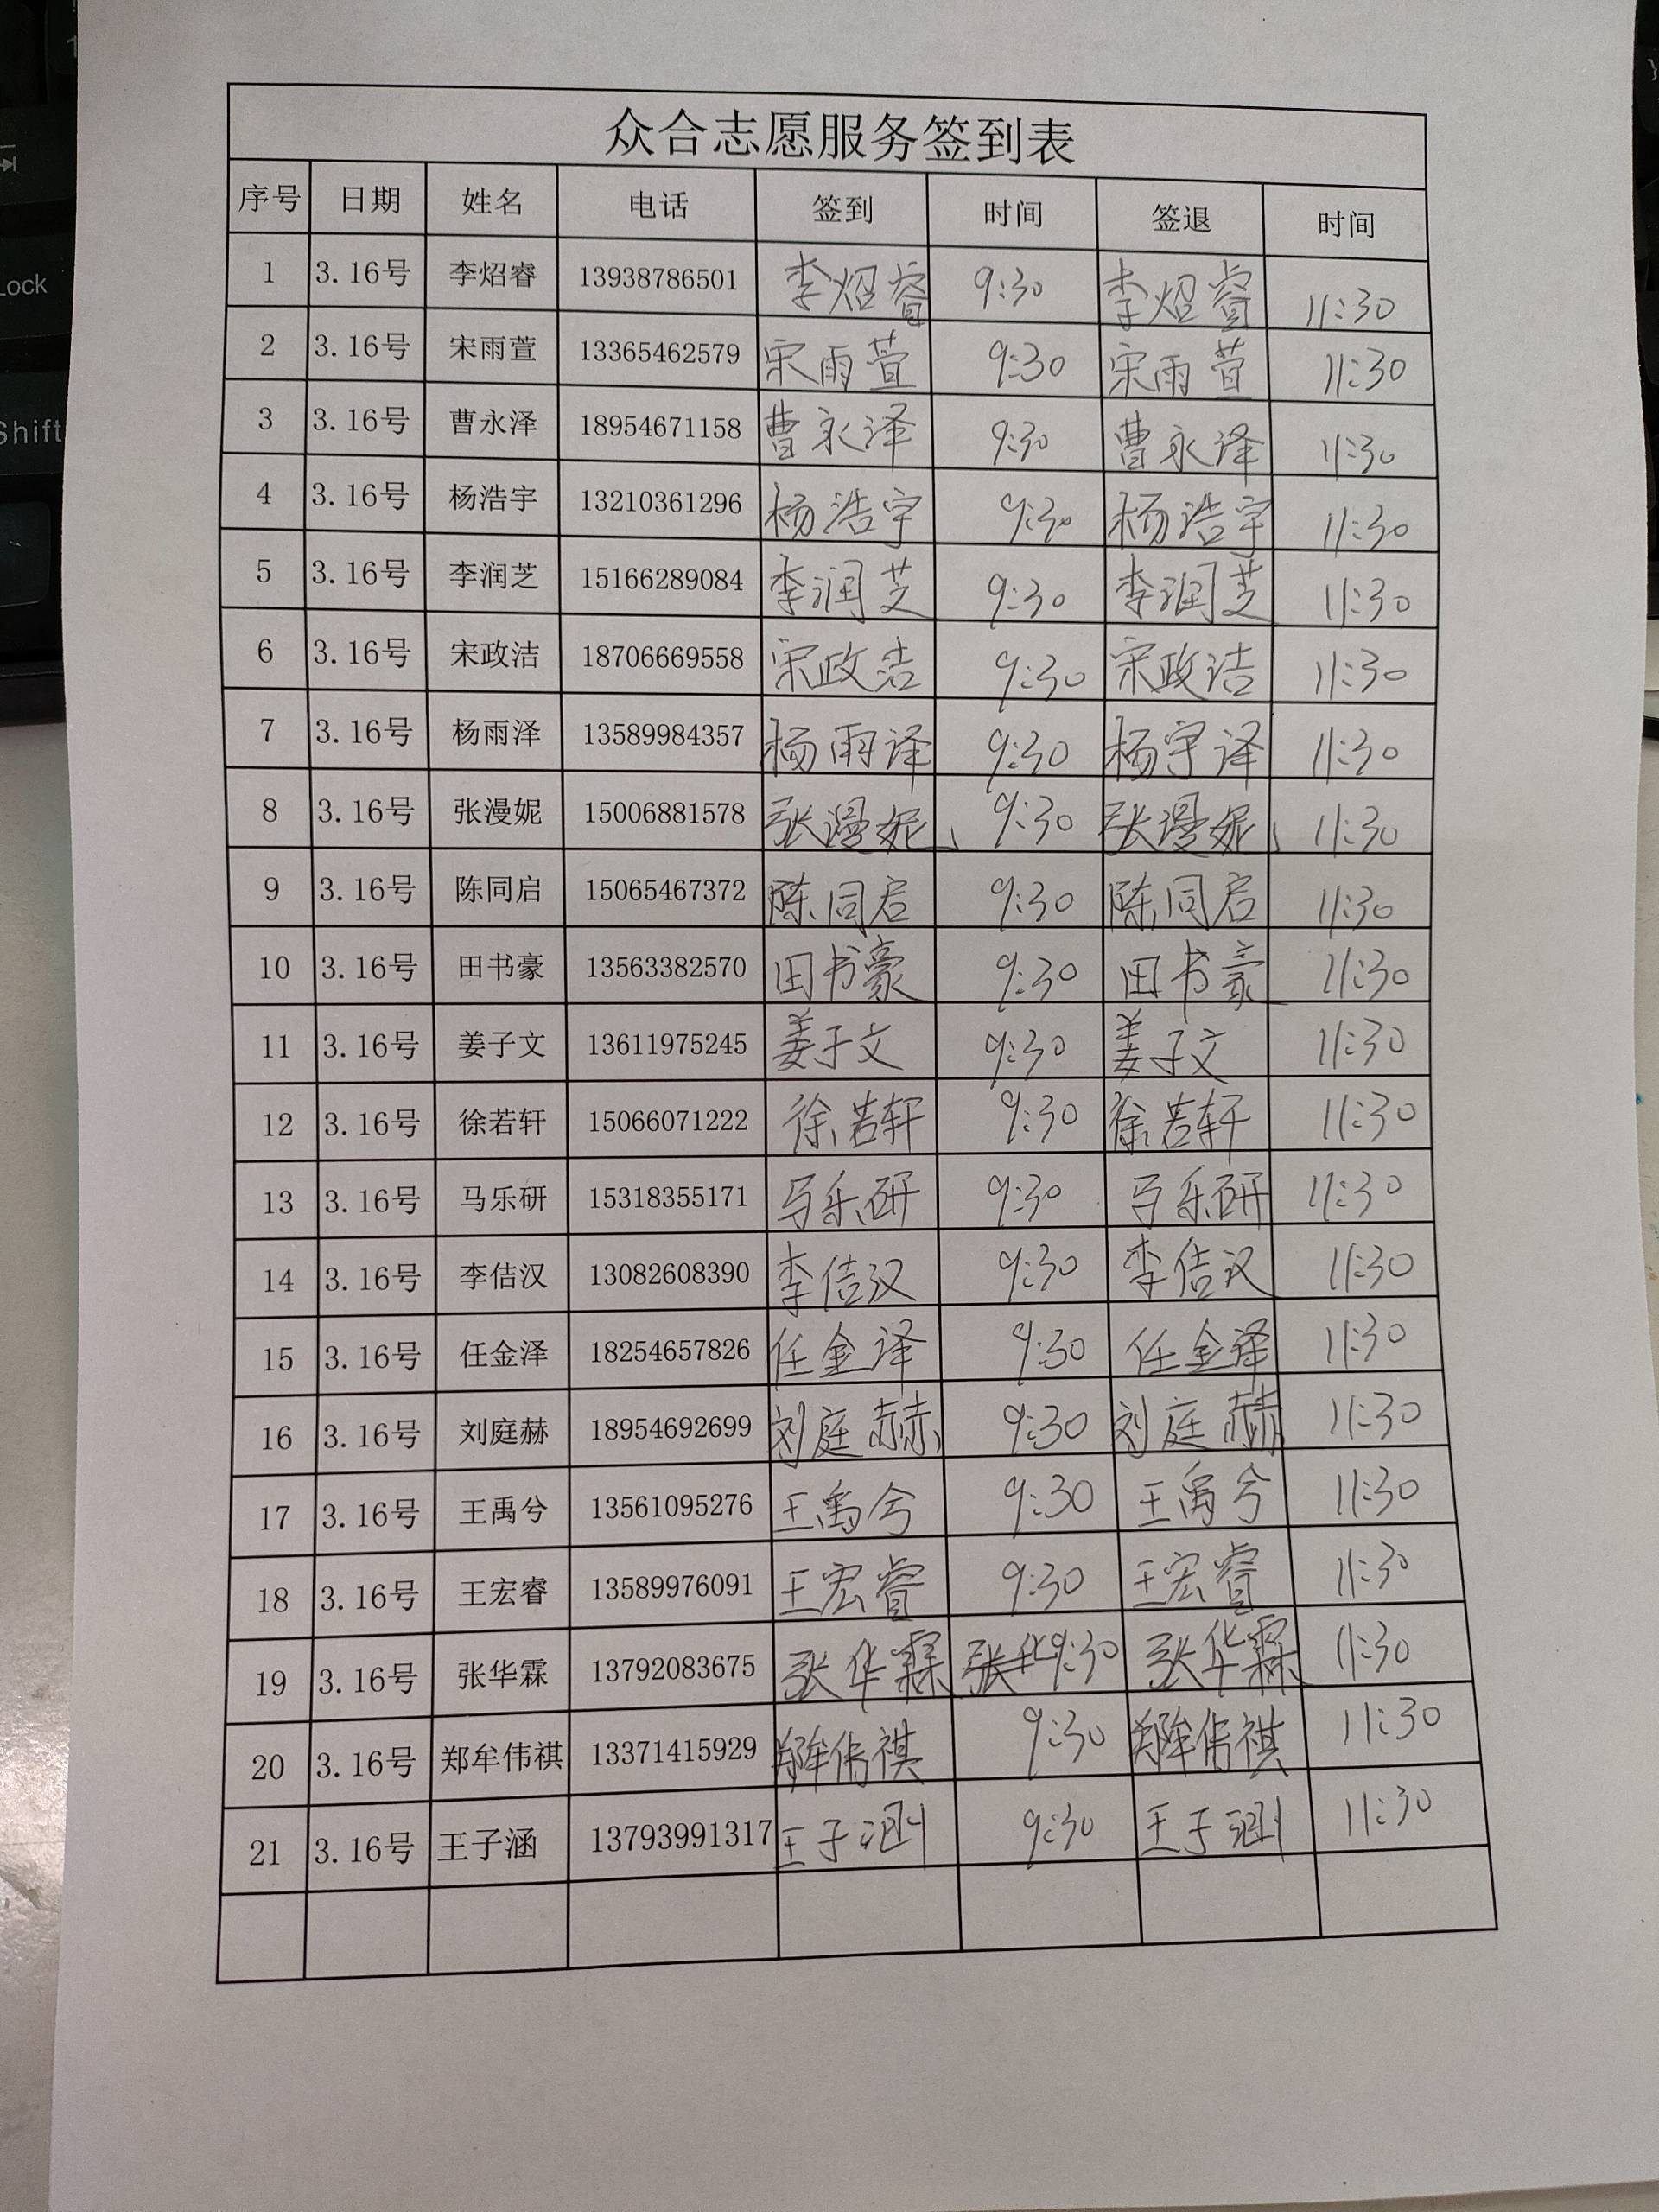 众合志愿服务签到表
序号 日期 姓名 电话 签到 时间 签退 时间
1 3.16号 李炤睿 13938786501 李炤睿 9:30 李炤睿 11:30
2 3.16号 宋雨萱 13365462579 宋雨萱 9:30 宋雨萱 11:30
3 3.16号 曹永泽 18954671158 曹永泽 9:30 曹永泽 11:30
4 3.16号 杨浩宇 13210361296 杨浩宇 9:30 杨浩宇 11:30
5 3.16号 李润芝 15166289084 李润芝 9:30 李润芝 11:30
6 3.16号 宋政洁 18706669558 宋政洁 9:30 宋政洁 11:30
7 3.16号 杨雨泽 13589984357 杨雨泽 9:30 杨宇泽 11:30
8 3.16号 张漫妮 15006881578 张漫妮 9:30 张漫妮 11:30
9 3.16号 陈同启 15065467372 陈同启 9:30 陈同启 11:30
10 3.16号 田书豪 13563382570 田书豪 9:30 田书豪 11:30
11 3.16号 姜子文 13611975245 姜子文 9:30 姜子文 11:30
12 3.16号 徐若轩 15066071222 徐若轩 9:30 徐若轩 11:30
13 3.16号 马乐研 15318355171 马乐研 9:30 马乐研 11:30
14 3.16号 李佶汉 13082608390 李佶汉 9:30 李佶汉 11:30
15 3.16号 任金泽 18254657826 任金泽 9:30 任金泽 11:30
16 3.16号 刘庭赫 18954692699 刘庭赫 9:30 刘庭赫 11:30
17 3.16号 王禹兮 13561095276 王禹兮 9:30 王禹兮 11:30
18 3.16号 王宏睿 13589976091 王宏睿 9:30 王宏睿 11:30
19 3.16号 张华霖 13792083675 张华霖 张华9:30 张华霖 11:30
20 3.16号 郑牟伟祺 13371415929 郑牟伟祺 9:30 郑牟伟祺 11:30
21 3.16号 王子涵 13793991317 王子涵 9:30 王子涵 11:30
Lock
Shift